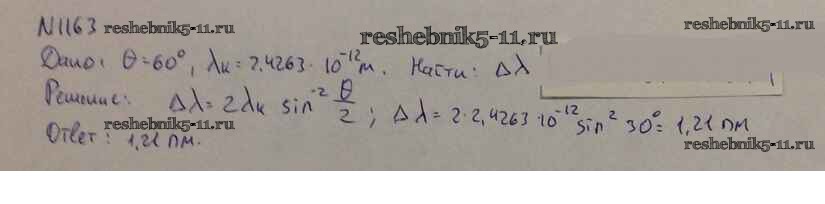 N1163 reshebnik5-11.ru
reshebnik5-11.ru reshebnik5-11.ru
Дано: θ=60°, λк=2.4263·10⁻¹²м. Найти: Δλ
Решение: Δλ=2λк sin⁻² θ/2; Δλ=2·2,4263·10⁻¹² sin² 30°=1,21 пм
reshebnik5-11.ru
Ответ: 1,21 пм.
reshebnik5-11.ru